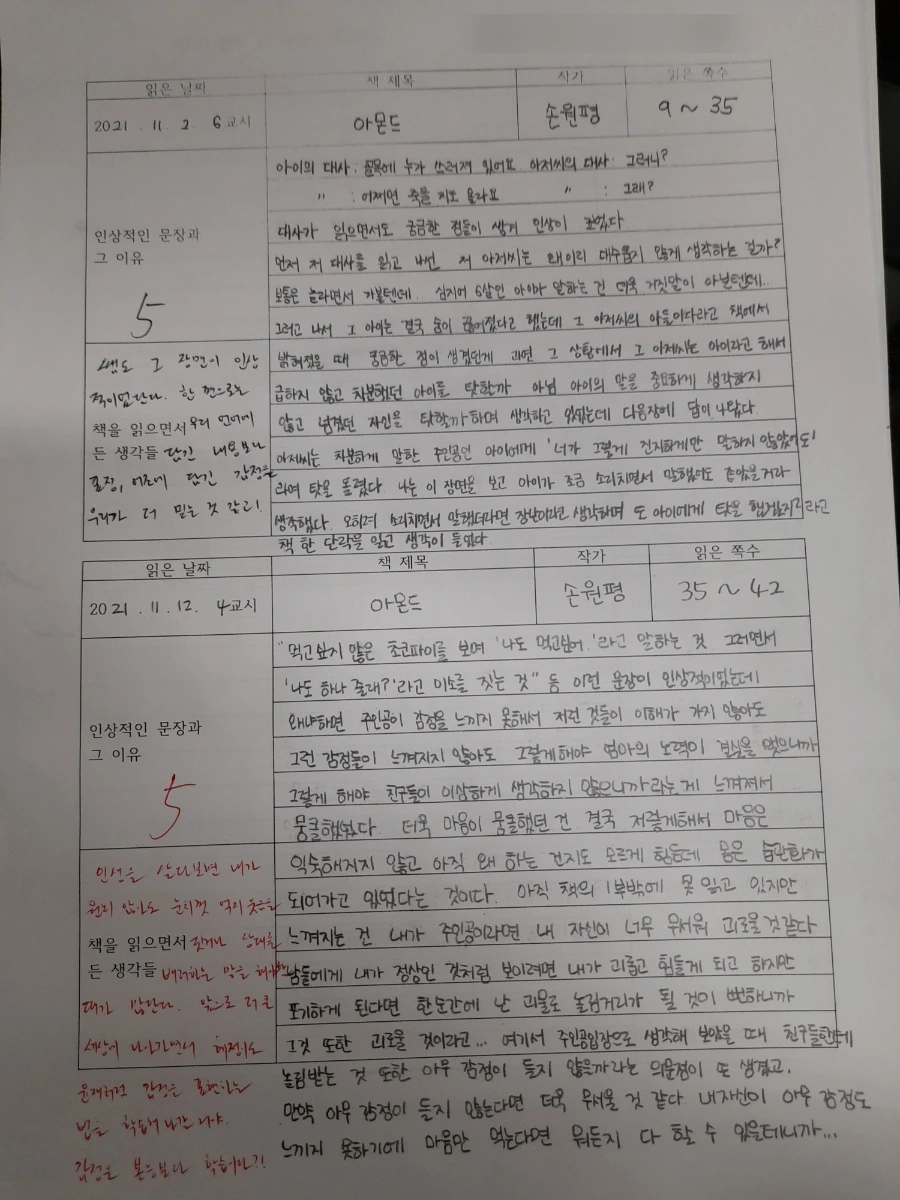 읽은 날짜 책 제목 작가 읽은 쪽수
2021 . 11 . 2 6교시 아몬드 손원평 9 ~ 35
아이의 대사 : 골목에 누가 쓰러져 있어요 아저씨의 대사 : 그러니?
〃 : 어쩌면 죽을 지도 몰라요 〃 : 그래?
대사가 읽으면서도 궁금한 점들이 생겨 인상이 깊었다
먼저 저 대사를 읽고 나선 저 아저씨는 왜이리 대수롭지 않게 생각하는 걸까?
보통은 놀라면서 가볼텐데.. 심지어 6살인 아이가 말하는 건 더욱 거짓말이 아닐텐데..
그러고 나서 그 아이는 결국 숨이 끊어졌다고 했는데 그 아저씨의 아들이다라고 책에서
인상적인 문장과
그 이유
5
밝혀졌을 때 궁금한 점이 생겼던게 과연 그 상황에서 그 아저씨는 아이라고 해서
급하지 않고 차분했던 아이를 탓할까 아님 아이의 말을 중요하게 생각하지
않고 넘겼던 자신을 탓할까하며 생각하고 있었는데 다음장에 답이 나왔다.
아저씨는 차분하게 말한 주인공인 아이에게 '너가 그렇게 진지하게만 말하지 않았어도'
라며 탓을 돌렸다. 나는 이 장면을 보고 아이가 조금 소리치면서 말했어도 같았을거라
생각했다. 오히려 소리치면서 말했더라면 장난이라고 생각하며 또 아이에게 탓을 했겠지라고
책 한 단락을 읽고 생각이 들었다.
쌤도 그 장면이 인상
적이었단다. 한 편으로는
책을 읽으면서 우리 언어에
든 생각들 담긴 내용보다
표정, 어조에 담긴 감정을
우리가 더 믿는 것 같고!
읽은 날짜 책 제목 작가 읽은 쪽수
2021 . 11 . 12. 4교시 아몬드 손원평 35 ~ 42
"먹고싶지 않은 초코파이를 보며 '나도 먹고싶어.'라고 말하는 것 그러면서
'나도 하나 줄래?'라고 미소를 짓는 것" 등 이런 문장이 인상적이었는데
왜냐하면 주인공이 감정을 느끼지 못해서 저런 것들이 이해가 가지 않아도
그런 감정들이 느껴지지 않아도 그렇게해야 엄마의 노력이 결실을 맺으니까
그렇게 해야 친구들이 이상하게 생각하지 않으니까라는게 느껴져서
뭉클했었다. 더욱 마음이 뭉클했던 건 결국 저렇게해서 마음은
인상적인 문장과
그 이유
5
익숙해지지 않고 아직 왜 하는 건지도 모르게 힘든데 몸은 습관화가
되어가고 있었다는 것이다. 아직 책의 1부밖에 못 읽고 있지만
느껴지는 건 내가 주인공이라면 내 자신이 너무 무서워 괴로울 것 같다
남들에게 내가 정상인 것처럼 보이려면 내가 괴롭고 힘들게 되고 하지만
포기하게 된다면 한순간에 난 괴물로 놀림거리가 될 것이 뻔하니까
그것 또한 괴로울 것이라고... 여기서 주인공입장으로 생각해 보았을 때 친구들한테
놀림받는 것 또한 아무 감정이 들지 않을까라는 의문점이 또 생겼고.
만약 아무 감정이 들지 않는다면 더욱 무서울 것 같다 내자신이 아무 감정도
느끼지 못하기에 마음만 먹는다면 뭐든지 다 할 수 있을테니까...
인생을 살다보면 내가
원치 않아도 눈치껏 억지웃음을
책을 읽으면서 짓거나 상대를
든 생각들 배려하는 말을 해야할
때가 많단다. 앞으로 더 큰
세상에 나아가면서 혜정이도
윤재처럼 감정을 표현하는
법을 학습해 나간거야.
감정은 본능보다 학습이다?!